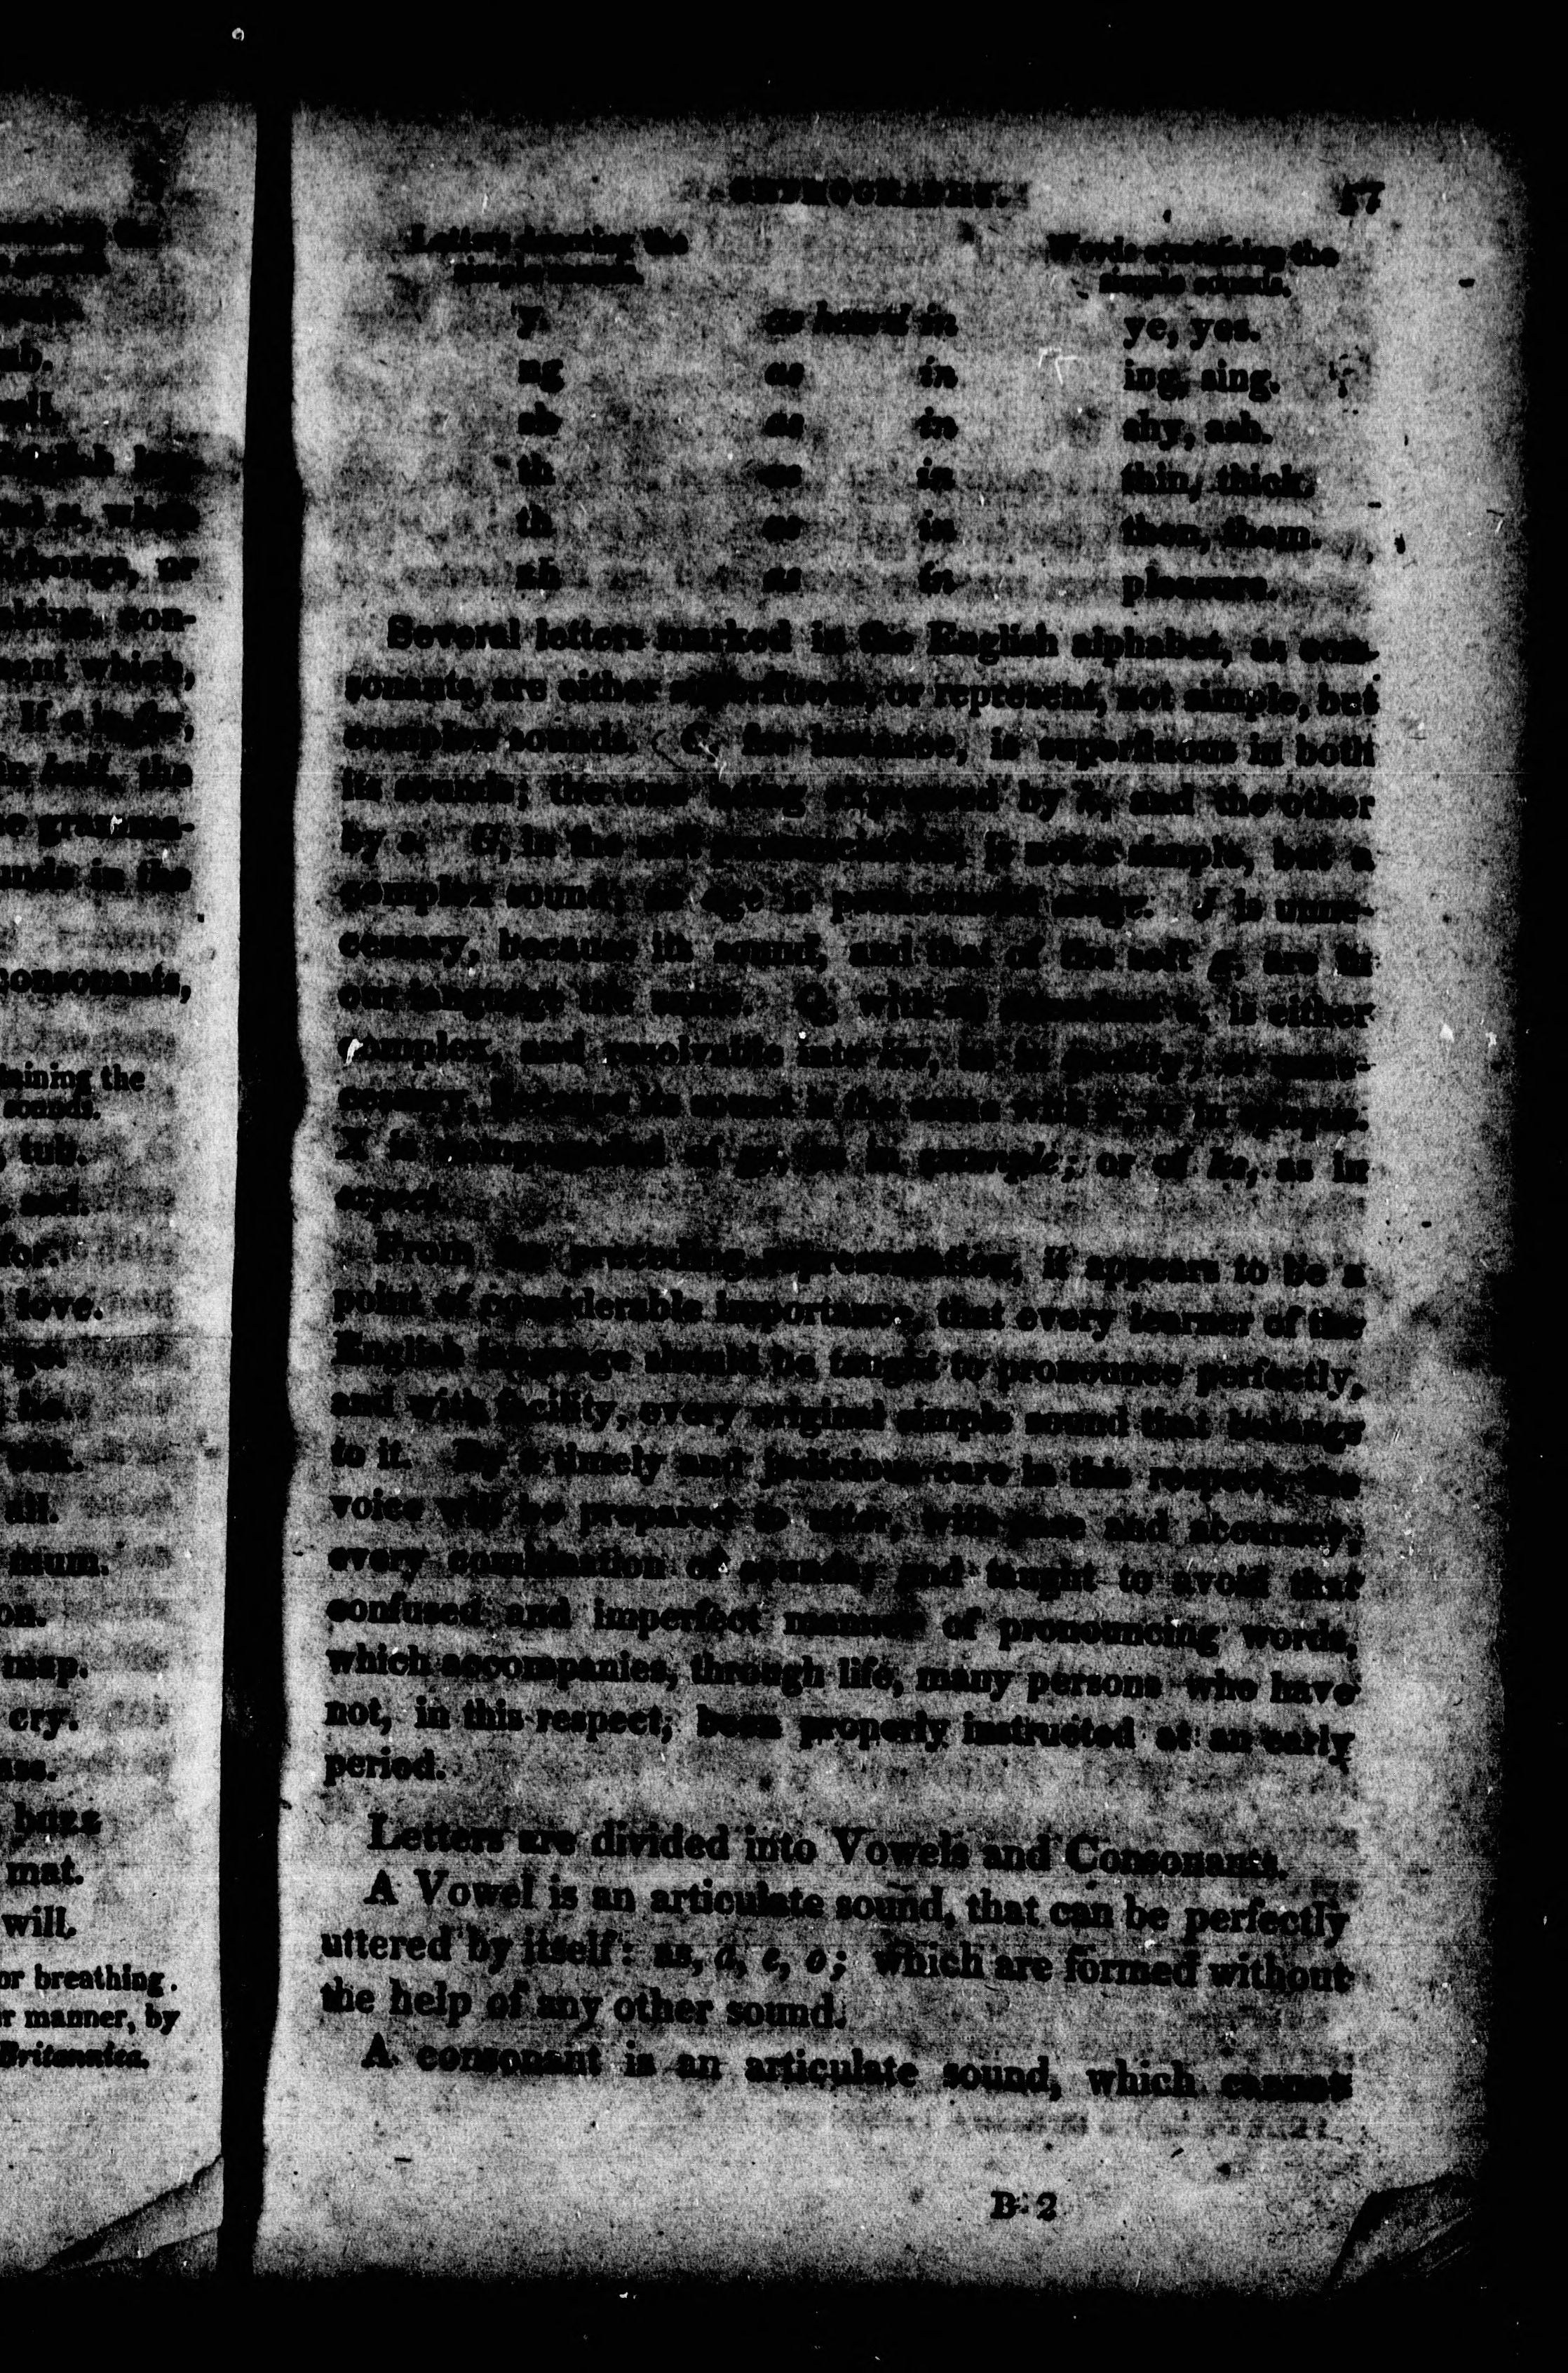 ab.
and u, where
or
con-
ment which,
in ball, the
gramma-
unds in the
consonants,
taining the
sounds.
, tub.
, sad.
for.
love.
go.
he.
all.
mum.
on.
map.
cry.
buzz
mat.
will.
or breathing.
r manner, by
Britannica.
ORTHOGRAPHY. 17
Letters denoting the
simple sounds.
Words containing the
simple sounds.
y as heard in ye, yes.
ng as in ing, sing.
sh as in shy, ash.
th as in thin, thick.
th as in then, them.
zh as in pleasure.
Several letters marked in the English alphabet, as con-
sonants, are either superfluous, or represent, not simple, but
complex sounds. C, for instance, is superfluous in both
its sounds; the one being expressed by k, and the other
by s. G, in the soft pronunciation, is not a simple, but a
complex sound; as age is pronounced aidge. J is unne-
cessary, because its sound, and that of the soft g, are in
our language the same. Q, with its attendant u, is either
complex, and resolvable into kw, as in quality; or unne-
cessary, because its sound is the same with k, as in opaque.
X is compounded of gs, as in example; or of ks, as in
expect.
From the preceding representation, it appears to be a
point of considerable importance, that every learner of the
English language should be taught to pronounce perfectly,
and with facility, every original simple sound that belongs
to it. By a timely and judicious care in this respect, the
voice will be prepared to utter, with ease and accuracy,
every combination of sounds; and taught to avoid that
confused and imperfect manner of pronouncing words,
which accompanies, through life, many persons who have
not, in this respect, been properly instructed at an early
period.
Letters are divided into Vowels and Consonants.
A Vowel is an articulate sound, that can be perfectly
uttered by itself: as, a, e, o; which are formed without
the help of any other sound.
A consonant is an articulate sound, which cannot
B 2